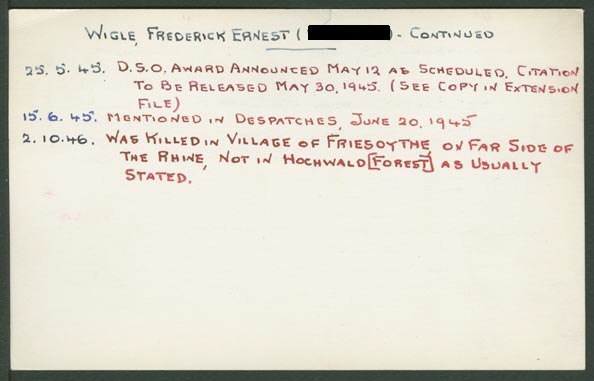 WIGLE, FREDERICK ERNEST ( ) - CONTINUED
25. 5. 45. D.S.O. AWARD ANNOUNCED MAY 12 AS SCHEDULED. CITATION
TO BE RELEASED MAY 30, 1945. (SEE COPY IN EXTENSION
FILE)
15. 6. 45. MENTIONED IN DESPATCHES, JUNE 20, 1945
2. 10. 46. WAS KILLED IN VILLAGE OF FRIESOYTHE, ON FAR SIDE OF
THE RHINE, NOT IN HOCHWALD [FOREST] AS USUALLY
STATED.